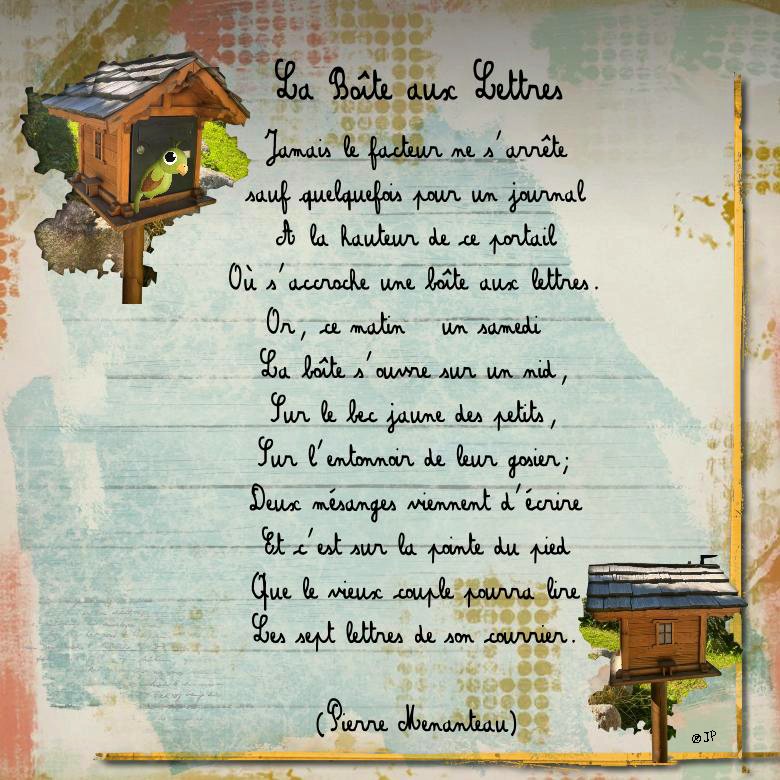 La Boîte aux Lettres
Jamais le facteur ne s'arrête
sauf quelquefois pour un journal
A la hauteur de ce portail
Où s'accroche une boîte aux lettres.
Or, ce matin un samedi
La boîte s'ouvre sur un nid,
Sur le bec jaune des petits,
Sur l'entonnoir de leur gosier;
Deux mésanges viennent d'écrire
Et c'est sur la pointe du pied
Que le vieux couple pourra lire
Les sept lettres de son courrier.
(Pierre Menanteau)
©JP